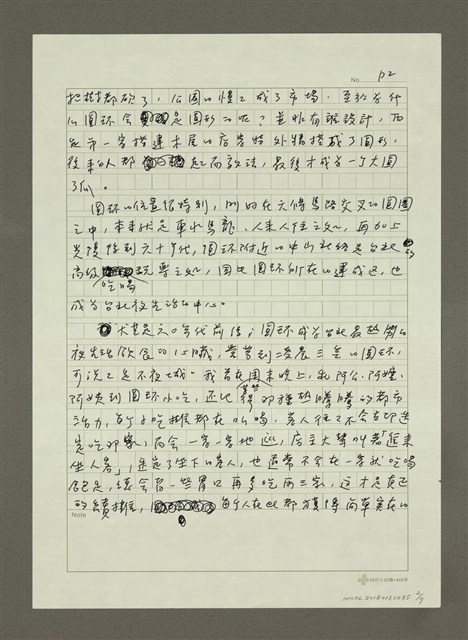 No. p2
把樹都砍了，公園也慢慢成了市場，至於為什
么圓環會是圓形的呢？並非有跟設計，而
是第一家搭建木屋的店家特外牆搭成了圓形，
後來的人都起而效法，最後才成為一个大圓
了瓜。
圓環的位置很特別，剛好在六條馬路交叉的圓圈
之中，本來就是車水馬龍、人來人往之処，再加上
光復後到六十年代，圓環附近的中山北路是台北
高級玩樂之処，因此圓環所在的建成区，也
吃喝
成為台北夜生活的中心。
尤其是六〇年代前後，圓環成為台北最熱鬧的
夜生活飲食的心臟，營業到凌晨三点的圓環，
可說是不夜城。我常在周末晚上，和阿公、阿嬤、
阿姨到圓環小吃，還記得那種熱騰騰的都市
活力，每个吃攤都在吆喝，客人往往不会立即進
去吃那家，而会一家一家地逛，店主大聲叫著「進來
坐人客」，選定了坐下的客人，也通常不会在一家就吃喝
飽足，總会留一些胃口再多吃兩三家，這才是真正
的續攤，每个人在此都獲得簡單実在的
Note
NMTL20180130085 2/7